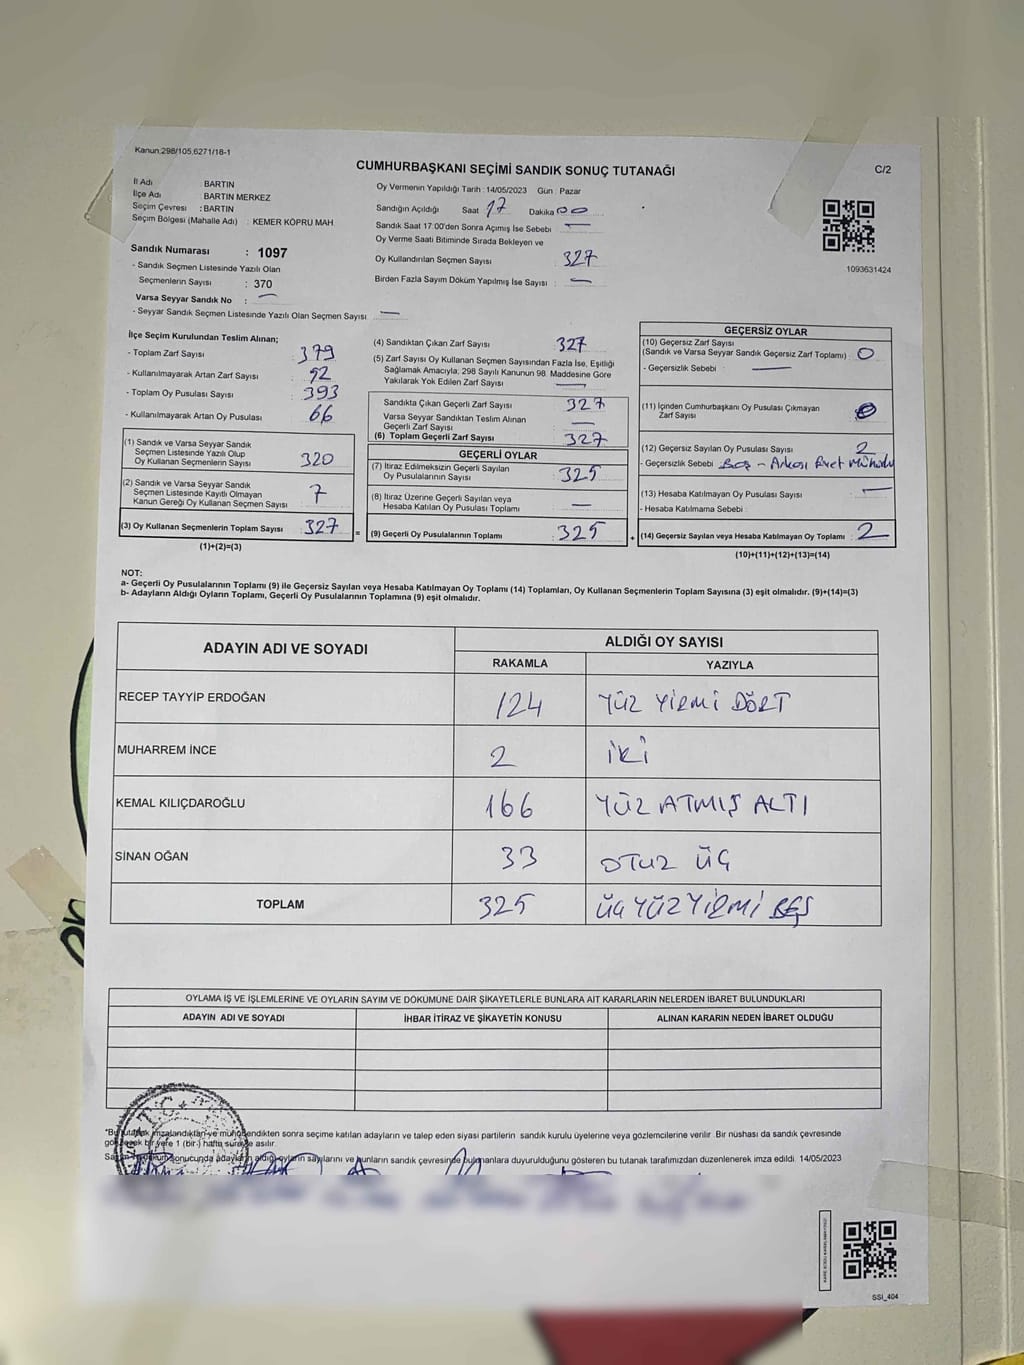 Kanun:298/105,6271/18-1
CUMHURBAŞKANI SEÇİMİ SANDIK SONUÇ TUTANAĞI
C/2
İl Adı : BARTIN
İlçe Adı BARTIN MERKEZ
Seçim Çevresi : BARTIN
Seçim Bölgesi (Mahalle Adı) : KEMER KÖPRÜ MAH
Sandık Numarası : 1097
- Sandık Seçmen Listesinde Yazılı Olan
Seçmenlerin Sayısı : 370
Varsa Seyyar Sandık No : —
- Seyyar Sandık Seçmen Listesinde Yazılı Olan Seçmen Sayısı —
Oy Vermenin Yapıldığı Tarih : 14/05/2023 Gün : Pazar
Sandığın Açıldığı Saat 17 Dakika 00
Sandık Saat 17:00'den Sonra Açımış İse Sebebi —
Oy Verme Saati Bitiminde Sırada Bekleyen ve
Oy Kullandırılan Seçmen Sayısı 327
Birden Fazla Sayım Döküm Yapılmış İse Sayısı : —
1093631424
İlçe Seçim Kurulundan Teslim Alınan;
- Toplam Zarf Sayısı : 379
- Kullanılmayarak Artan Zarf Sayısı : 52
- Toplam Oy Pusulası Sayısı : 393
- Kullanılmayarak Artan Oy Pusulası : 66
(1) Sandık ve Varsa Seyyar Sandık
Seçmen Listesinde Yazılı Olup
Oy Kullanan Seçmenlerin Sayısı : 320
(2) Sandık ve Varsa Seyyar Sandık
Seçmen Listesinde Kayıtlı Olmayan
Kanun Gereği Oy Kullanan Seçmen Sayısı : 7
(3) Oy Kullanan Seçmenlerin Toplam Sayısı : 327 =
(1)+(2)=(3)
(4) Sandıktan Çıkan Zarf Sayısı : 327
(5) Zarf Sayısı Oy Kullanan Seçmen Sayısından Fazla İse, Eşitliği
Sağlamak Amacıyla; 298 Sayılı Kanunun 98. Maddesine Göre
Yakılarak Yok Edilen Zarf Sayısı —
Sandıkta Çıkan Geçerli Zarf Sayısı : 327
Varsa Seyyar Sandıktan Teslim Alınan
Geçerli Zarf Sayısı : —
(6) Toplam Geçerli Zarf Sayısı : 327
GEÇERLİ OYLAR
(7) İtiraz Edilmeksizin Geçerli Sayılan
Oy Pusulalarının Sayısı : 325
(8) İtiraz Üzerine Geçerli Sayılan veya
Hesaba Katılan Oy Pusulası Toplamı : —
(9) Geçerli Oy Pusulalarının Toplamı : 325 +
GEÇERSİZ OYLAR
(10) Geçersiz Zarf Sayısı
(Sandık ve Varsa Seyyar Sandık Geçersiz Zarf Toplamı) : 0
- Geçersizlik Sebebi : —
(11) İçinden Cumhurbaşkanı Oy Pusulası Çıkmayan
Zarf Sayısı 0
(12) Geçersiz Sayılan Oy Pusulası Sayısı : 2
- Geçersizlik Sebebi Boş - Arkası Evet Mühürlü
(13) Hesaba Katılmayan Oy Pusulası Sayısı : —
- Hesaba Katılmama Sebebi
(14) Geçersiz Sayılan veya Hesaba Katılmayan Oy Toplamı : 2
(10)+(11)+(12)+(13)=(14)
NOT:
a- Geçerli Oy Pusulalarının Toplamı (9) ile Geçersiz Sayılan veya Hesaba Katılmayan Oy Toplamı (14) Toplamları, Oy Kullanan Seçmenlerin Toplam Sayısına (3) eşit olmalıdır. (9)+(14)=(3)
b- Adayların Aldığı Oyların Toplamı, Geçerli Oy Pusulalarının Toplamına (9) eşit olmalıdır.
ADAYIN ADI VE SOYADI
ALDIĞI OY SAYISI
RAKAMLA YAZIYLA
RECEP TAYYİP ERDOĞAN 124 YÜZ YİRMİ DÖRT
MUHARREM İNCE 2 İKİ
KEMAL KILIÇDAROĞLU 166 YÜZ ATMIŞ ALTI
SİNAN OĞAN 33 OTUZ ÜÇ
TOPLAM 325 ÜÇ YÜZ YİRMİ BEŞ
OYLAMA İŞ VE İŞLEMLERİNE VE OYLARIN SAYIM VE DÖKÜMÜNE DAİR ŞİKAYETLERLE BUNLARA AİT KARARLARIN NELERDEN İBARET BULUNDUKLARI
ADAYIN ADI VE SOYADI İHBAR İTİRAZ VE ŞİKAYETİN KONUSU ALINAN KARARIN NEDEN İBARET OLDUĞU
*Bu tutanak imzalandıktan ve mühürlendikten sonra seçime katılan adayların ve talep eden siyasi partilerin sandık kurulu üyelerine veya gözlemcilerine verilir. Bir nüshası da sandık çevresinde
görülecek bir yere 1 (bir ) hafta süreyle asılır.
Sayım döküm sonucunda adayların aldığı oyların sayılarını ve bunların sandık çevresinde bulunanlara duyurulduğunu gösteren bu tutanak tarafımızdan düzenlenerek imza edildi. 14/05/2023
SSİ_404